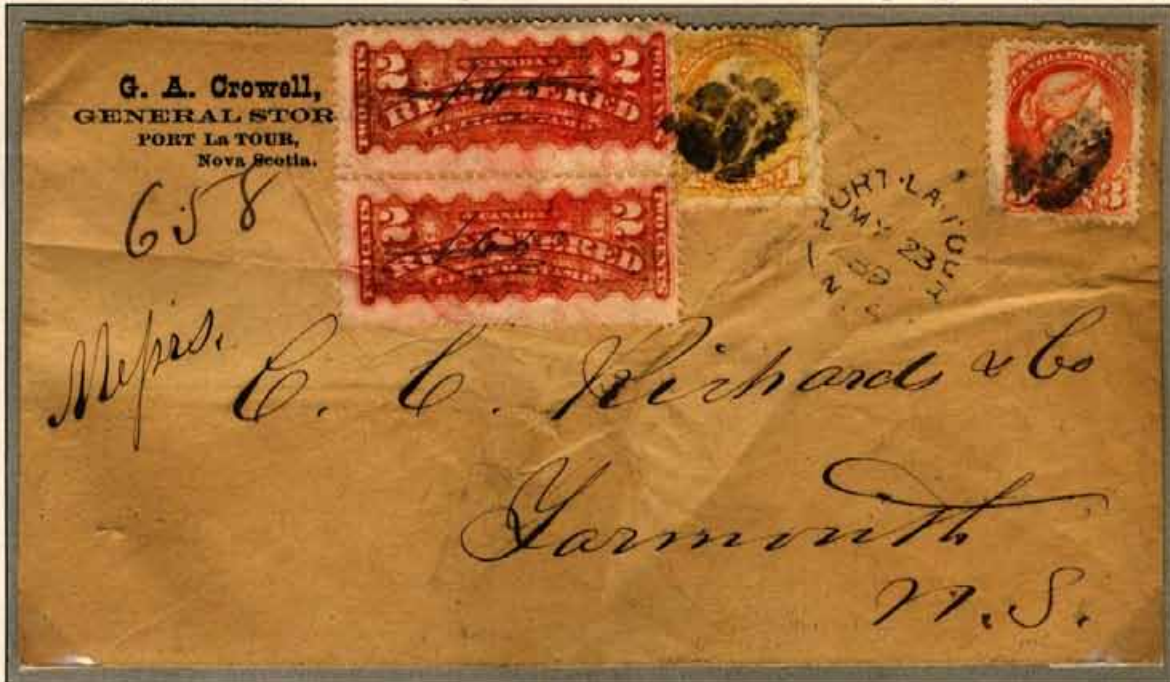 G. A. Crowell,
GENERAL STOR
PORT La TOUR,
Nova Scotia.
658
2 CANADA 2
REGISTERED
2 CANADA 2
REGISTERED
1
3
PORT-LA-TOUR
MY 23
89
N. S.
Messrs.
C. C. Richards & Co
Yarmouth
N. S.